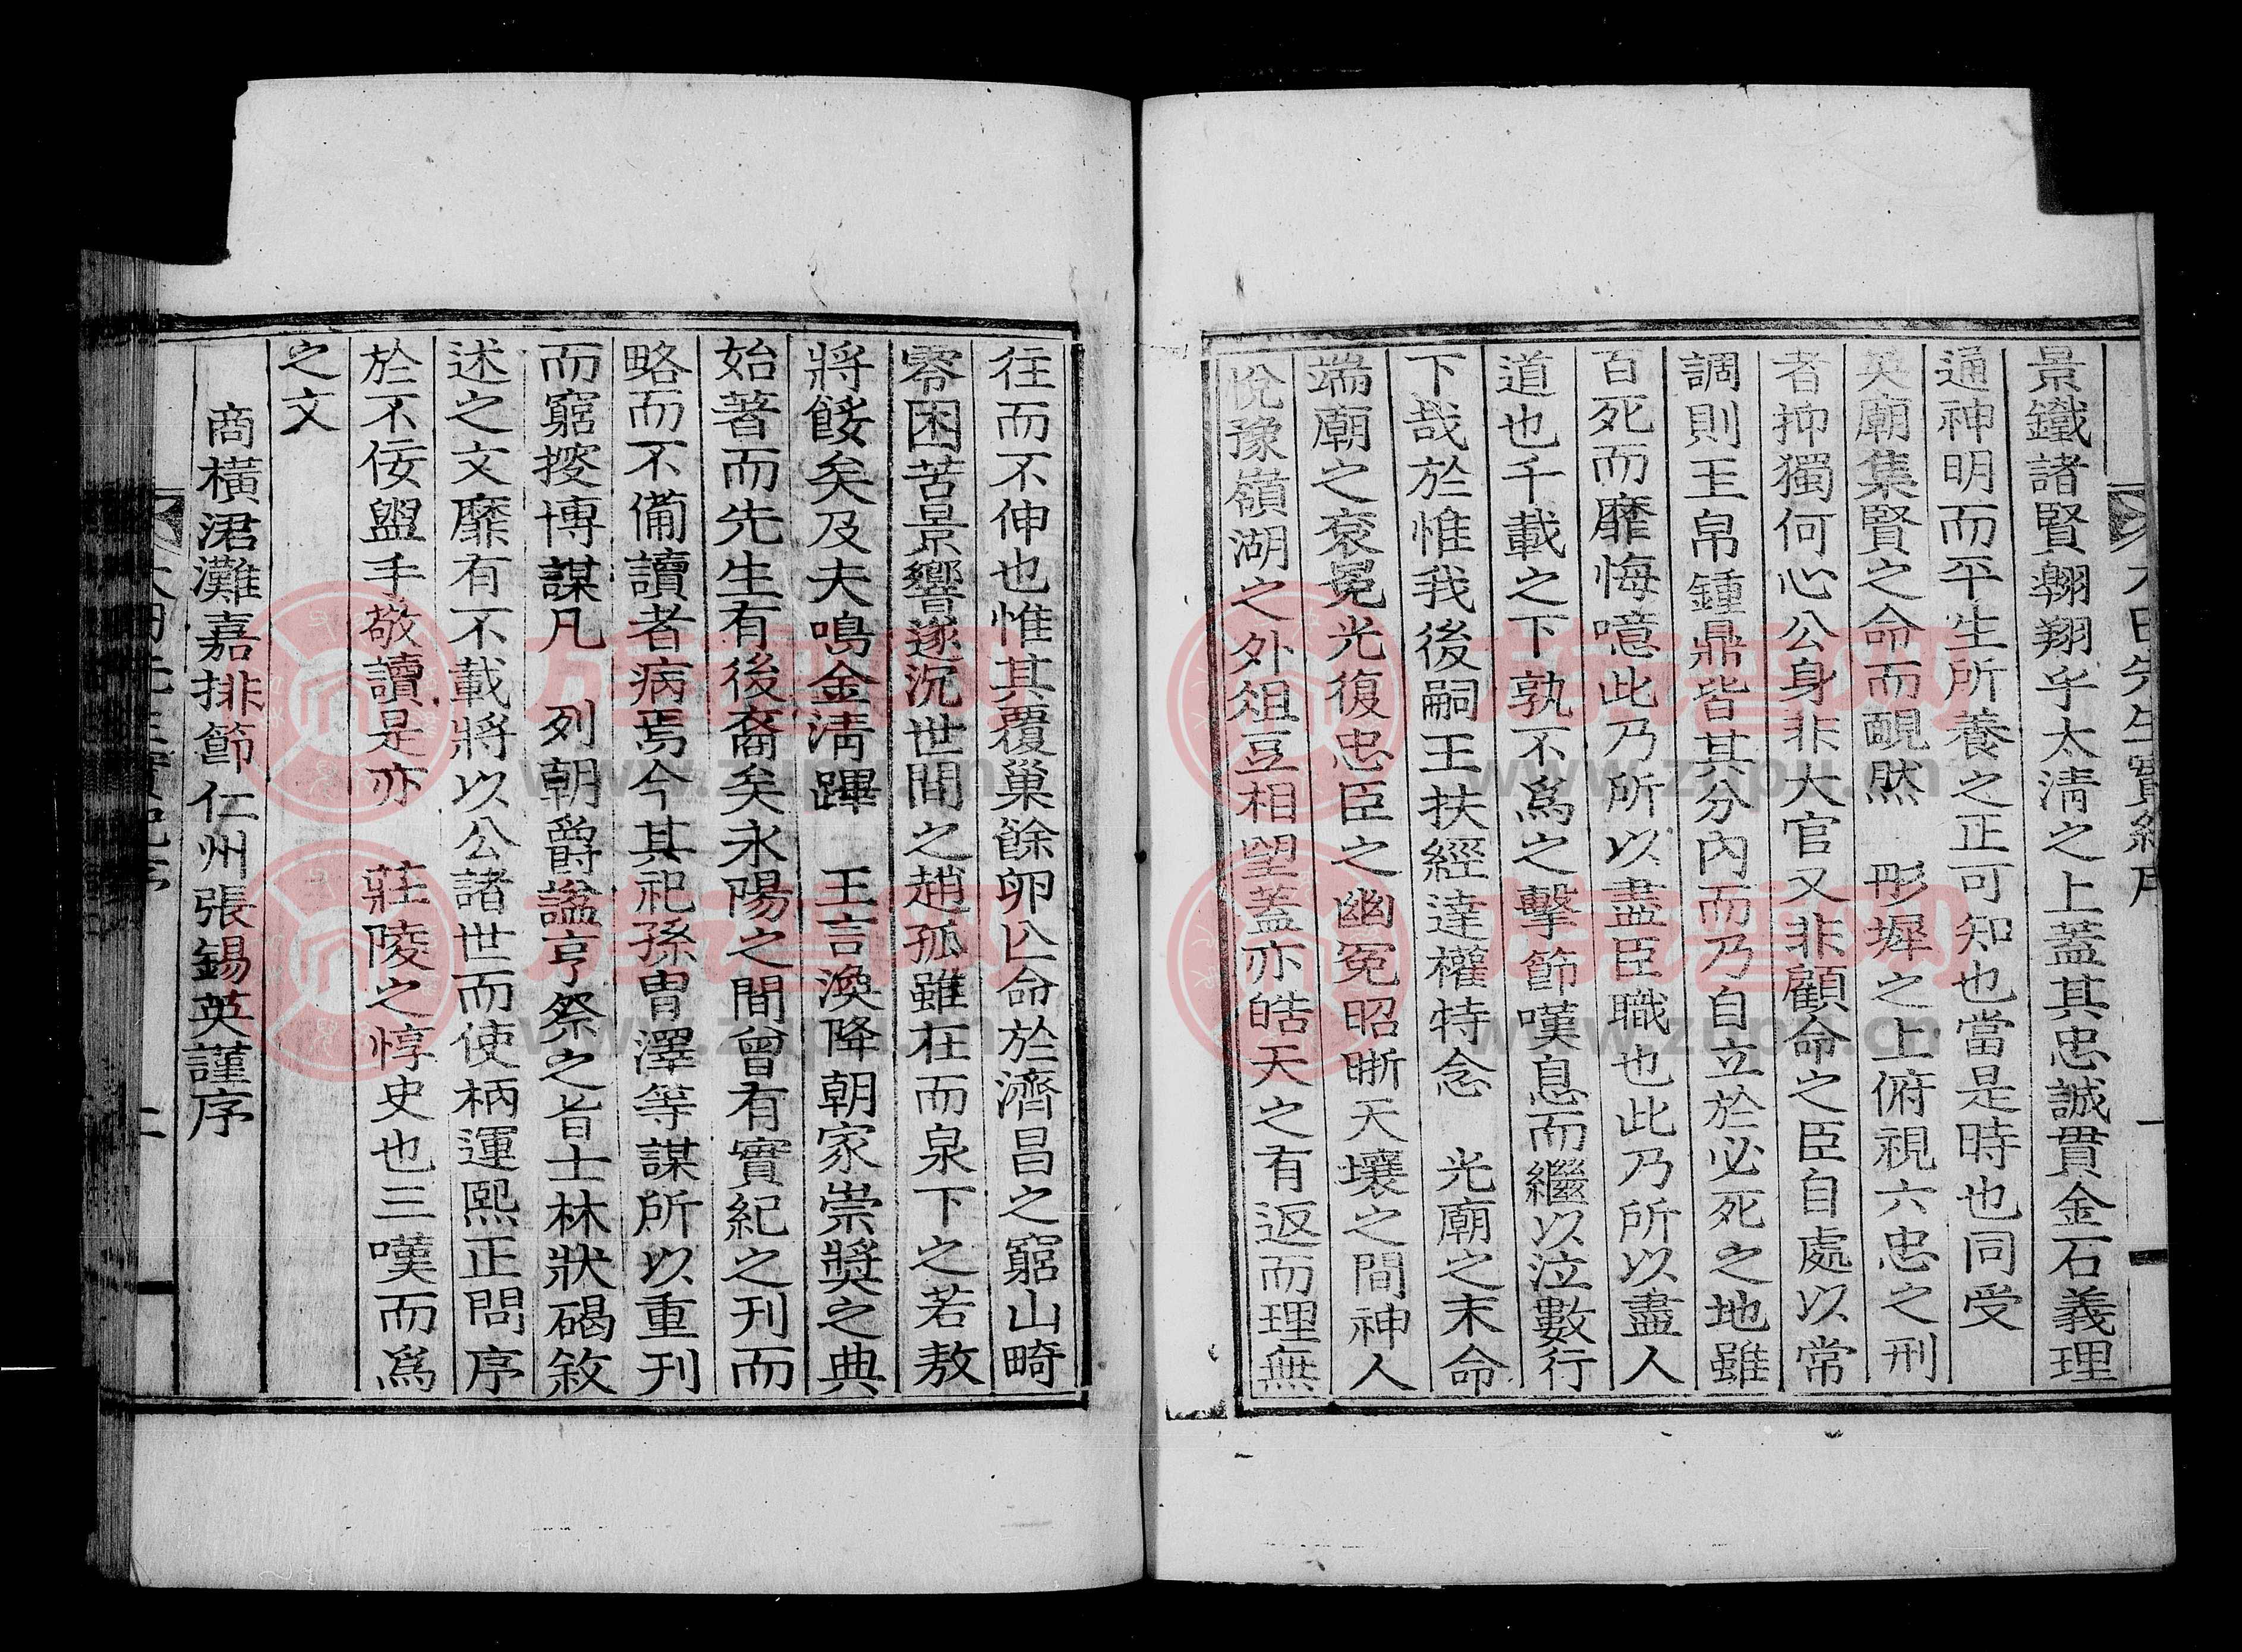 景鐵諸賢翱翔乎太淸之上蓋其忠誠貫金石義理
通神明而平生所養之正可知也當是時也同受
英廟集賢之命而靦然 彤墀之上俯視六忠之刑
者抑獨何心公身非大官又非顧命之臣自處以常
調則玉帛鍾鼎皆其分內而乃自立於必死之地雖
百死而靡悔噫此乃所以盡臣職也此乃所以盡人
道也千載之下孰不爲之擊節嘆息而繼以泣數行
下哉於惟我後嗣王扶經達權特念 光廟之末命
端廟之袞冕光復忠臣之幽冤昭晣天壤之間神人
悅豫嶺湖之外俎豆相望蓋亦皓天之有返而理無
往而不伸也惟其覆巢餘卵匕命於濟昌之窮山畸
零困苦景響遂沉世間之趙孤雖在而泉下之若敖
將餒矣及夫鳴金淸蹕 王言渙降朝家崇奬之典
始著而先生有後裔矣永陽之間曾有實紀之刊而
略而不備讀者病焉今其祀孫冑澤等謀所以重刊
而窮搜博謀凡 列朝爵諡亨祭之旨士林狀碣敘
述之文靡有不載將以公諸世而使柄運熙正問序
於不佞盥手敬讀是亦 莊陵之惇史也三嘆而爲
之文
商橫涒灘嘉排節仁州張錫英謹序
二
族譜网
www.zupu.cn